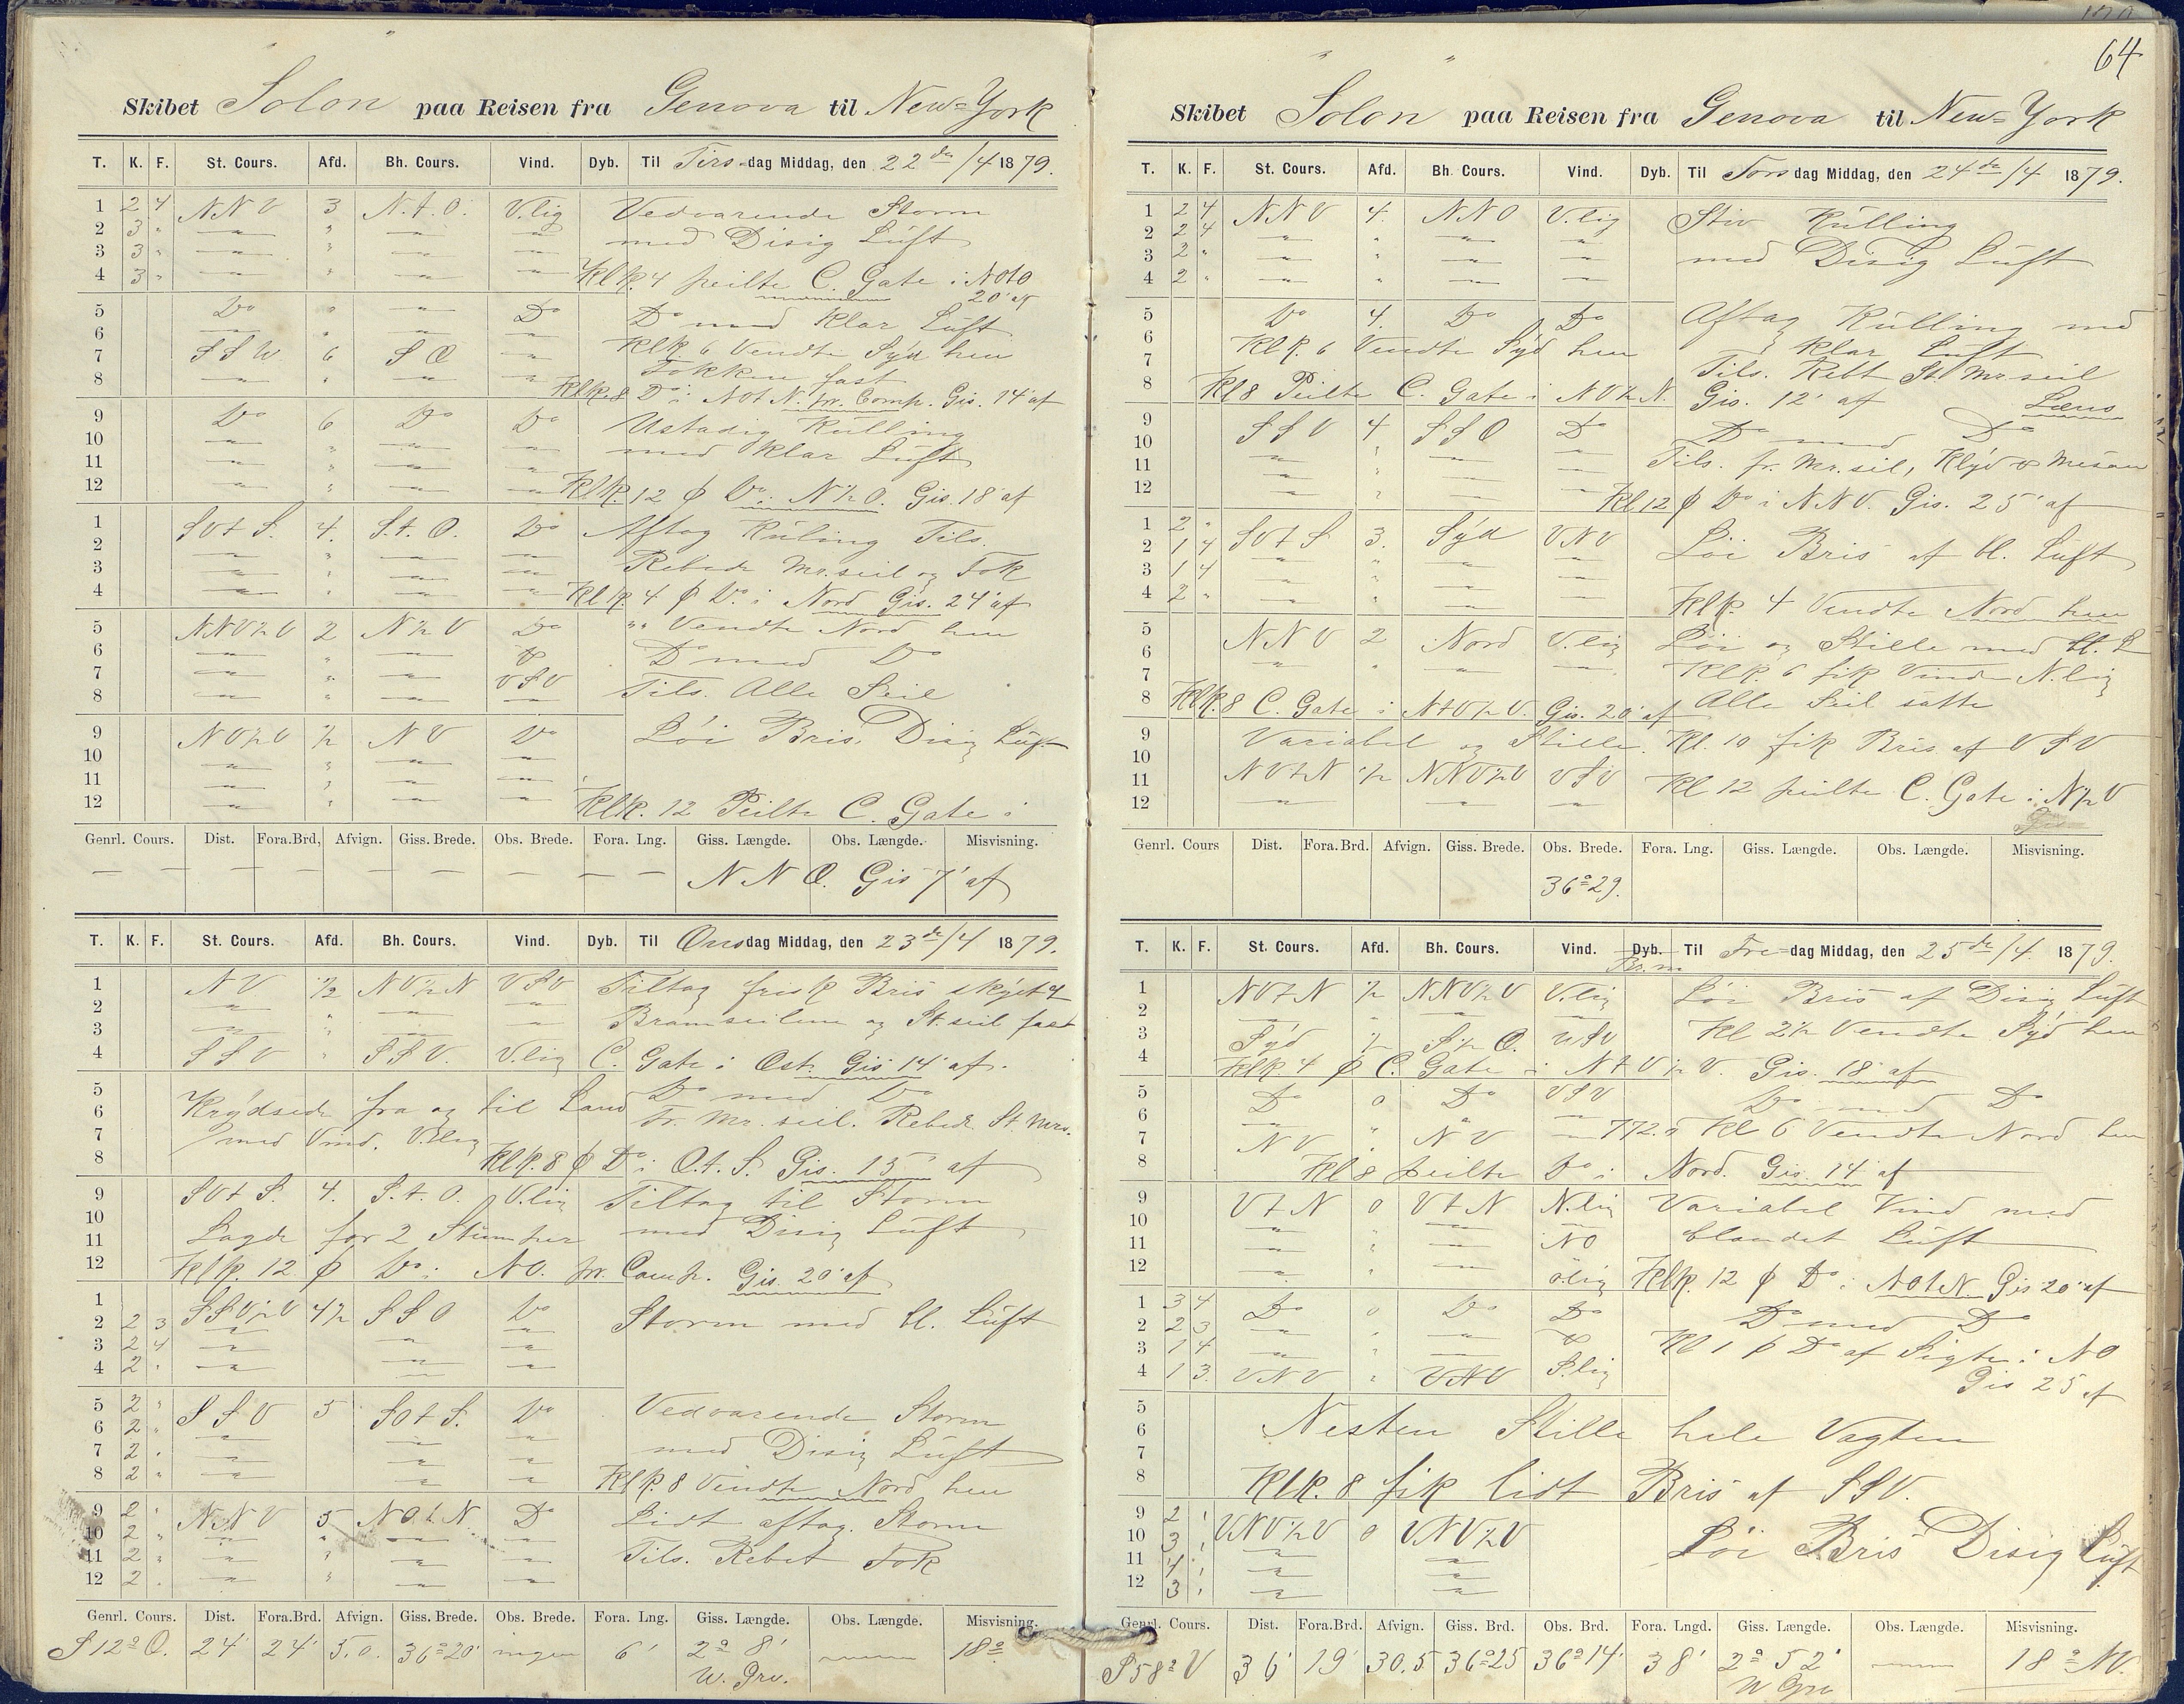 64
Skibet Solon paa Reisen fra Genova til New=York
T. K. F. St. Cours. Afd. Bh. Cours. Vind. Dyb. Til Tirsdag Middag, den 22de/4 1879.
1 2 4 NNV 3 N.t.O. V.lig Vedvarende Storm
2 3 " — " — — med Disig Luft
3 3 " — " — —
4 3 " — " — — Klk. 4 peilte C. Gate i NOtO
20' af
5 Do " — Do Do med Klar Luft
6 — " — — Klk. 6 Vendte Syd hen
7 SSW 6 SO — Fokken fast
8 — " — — Klk. 8 Do i NOtN. pr. Comp. Gis. 14' af
9 Do 6 Do Do Ustadig Kulling
10 — " — — med Klar Luft
11 — " — —
12 — " — — Klk. 12 p Do i N½O. Gis. 18' af
1 SVtS. 4. S.t.O. Do Aftag Kuling Tils.
2 — " — —
3 — " — — Rebede Mr.seil og Fok
4 — " — — Klk. 4 p Do i Nord Gis. 24' af
5 NNV½V 2 N½V Do "" Vendte Nord hen
6 — " — Do Do med Do
7 — " — VSV
8 — " — — Tils. Alle Seil
9 NV½V ½ NV Do Löi Bris, Disig Luft
10 — " — —
11 — " — —
12 — " — — Klk. 12 Peilte C. Gate i
Genrl. Cours. Dist. Fora.Brd, Afvign. Giss. Brede. Obs. Brede. Fora. Lng. Giss. Længde. Obs. Længde. Misvisning.
— — — — — — — — NNO. Gis 7' af
T. K. F. St. Cours. Afd. Bh. Cours. Vind. Dyb. Til Onsdag Middag, den 23de/4 1879.
1 NV. ½ NV½N VSV Tiltag frisk Bris
2 — " — — Bramseilene og St.seil fast
3 — " — —
4 SSV " SSV. V.lig C. Gate i Ost Gis 14' af.
5 Do med Do
6 Krydsede fra og til Land Fr. Mr. seil. Rebede St Mrs.
7 med Vind. V.lig
8 Klk. 8 p Do i O.t.S. Gis. 15' af
9 SVtS. 4. S.t.O. V.lig Tiltog til Storm
10 Lagde for 2 Stumper med Disig Luft
11
12 Klk. 12 p Do i NO. pr. Comp. Gis. 20' af
1 SSV½V 4½ SSO Do Storm med bl. Luft
2 2 3 — — —
3 2 4 — — —
4 2 " — — —
5 2 " SSV 5 SOtS. Do Vedvarende Storm
6 2 " — — —
7 2 " — — — med Disig Luft
8 2 " — — — Klk. 8 Vendte Nord hen
9 2 " NNV 5 NOtN Do Lidt aftag. Storm
10 2 " — " — —
11 2 " — " — — Tils. Rebet Fok
12 2 " — " — —
Genrl. Cours. Dist. Fora.Brd. Afvign. Giss. Brede. Obs. Brede. Fora. Lng. Giss. Længde. Obs. Længde. Misvisning.
S 12° O. 24' 24' 5.0. 36°20' ingen 6' 2° 8' — 18°
W. Grv.
Skibet Solon paa Reisen fra Genova til New=York
T. K. F. St. Cours. Afd. Bh. Cours. Vind. Dyb. Til Torsdag Middag, den 24de/4 1879.
1 2 4 NNV 4. NNO V.lig Stiv Kulling
2 2 4 — " — —
3 2 " — " — — med Disig Luft
4 2 " — " — —
5 Do 4. Do Do Aftag Kulling med
6 Klk. 6 Vendte Syd hen Klar Luft
7 Tils. Rebt St Mr seil
8 Kl 8 Peilte C. Gate i NO½N. Gis. 12' af Læns
9 SSV 4 SSO Do Do med Do
10 — " — —
11 — " — — Tils. fr. Mr.seil, Klyd & Mesan
12 — " — — Kl 12 p Do i NNO. Gis. 25' af
1 2 " SVtS 3. Syd VNV Löi Bris af bl. Luft
2 1 4 — " — —
3 1 4 — " — —
4 2 " — " — — Klk. 4 Vendte Nord hen
5 NNV 2 Nord V.lig Löi og Stille med bl. L
6 — " — — Klk. 6 fik Vind N.lig
7
8 Klk. 8 C. Gate i NtV½V. Gis. 20' af Alle Seil satte
9 Variabel og Stille. Kl. 10 fik Bris af VSV
10
11 NVtN ½ NNV½V VSV Kl 12 peilte C. Gate i N½V
12 — — —
Genrl. Cours Dist. Fora.Brd. Afvign. Giss. Brede. Obs. Brede. Fora. Lng. Giss. Længde. Obs. Længde. Misvisning.
36°29.
T. K. F. St. Cours. Afd. Bh. Cours. Vind. Dyb. Til Fredag Middag, den 25de/4 1879.
1 NVtN ½ NNV½V V.lig Löi Bris af Disig Luft
2 — " — — Kl 2½ Vendte Syd hen
3 Syd ½ S½O. VSV
4 Klk. 4 p C. Gate i NtV½V. Gis. 18' af
5 Do 0 Do VSV Do med Do
6 — " — —
7 NV " NV — 772. Kl 6 Vendte Nord hen
8 Kl 8 peilte Do i Nord. Gis. 14' af
9 VtN 0 VtN N.lig Variabel Vind med
10 — " — —
11 — " — NO blandet Luft
12 — " — Olig Klk. 12 p Do i NOtN. Gis 20' af
1 3 4 Do 0 Do Do Do med Do
2 2 3 — " — —
3 1 4 — " — Do Kl 1 p Do af Sigte i NO
4 1 3. VNV " VNV S.lig Gis 25 af
5
6 Nesten Stille hele Vagten
7
8 Klk. 8 fik lidt Bris af SSV.
9 2 " VNV½V 0 VNV½V Löi Bris Disig Luft
10 3 " — —
11 4 " — —
12 3 " — —
Genrl. Cours. Dist. Fora.Brd. Afvign. Giss. Brd. Obs. Brd. Fora. Lngd. Giss. Længde. Obs. Længde. Misvisning.
S 58° V 36' 19' 30.5 36°25 36°14' 38' 2° 52' — 18° NV.
W Grv